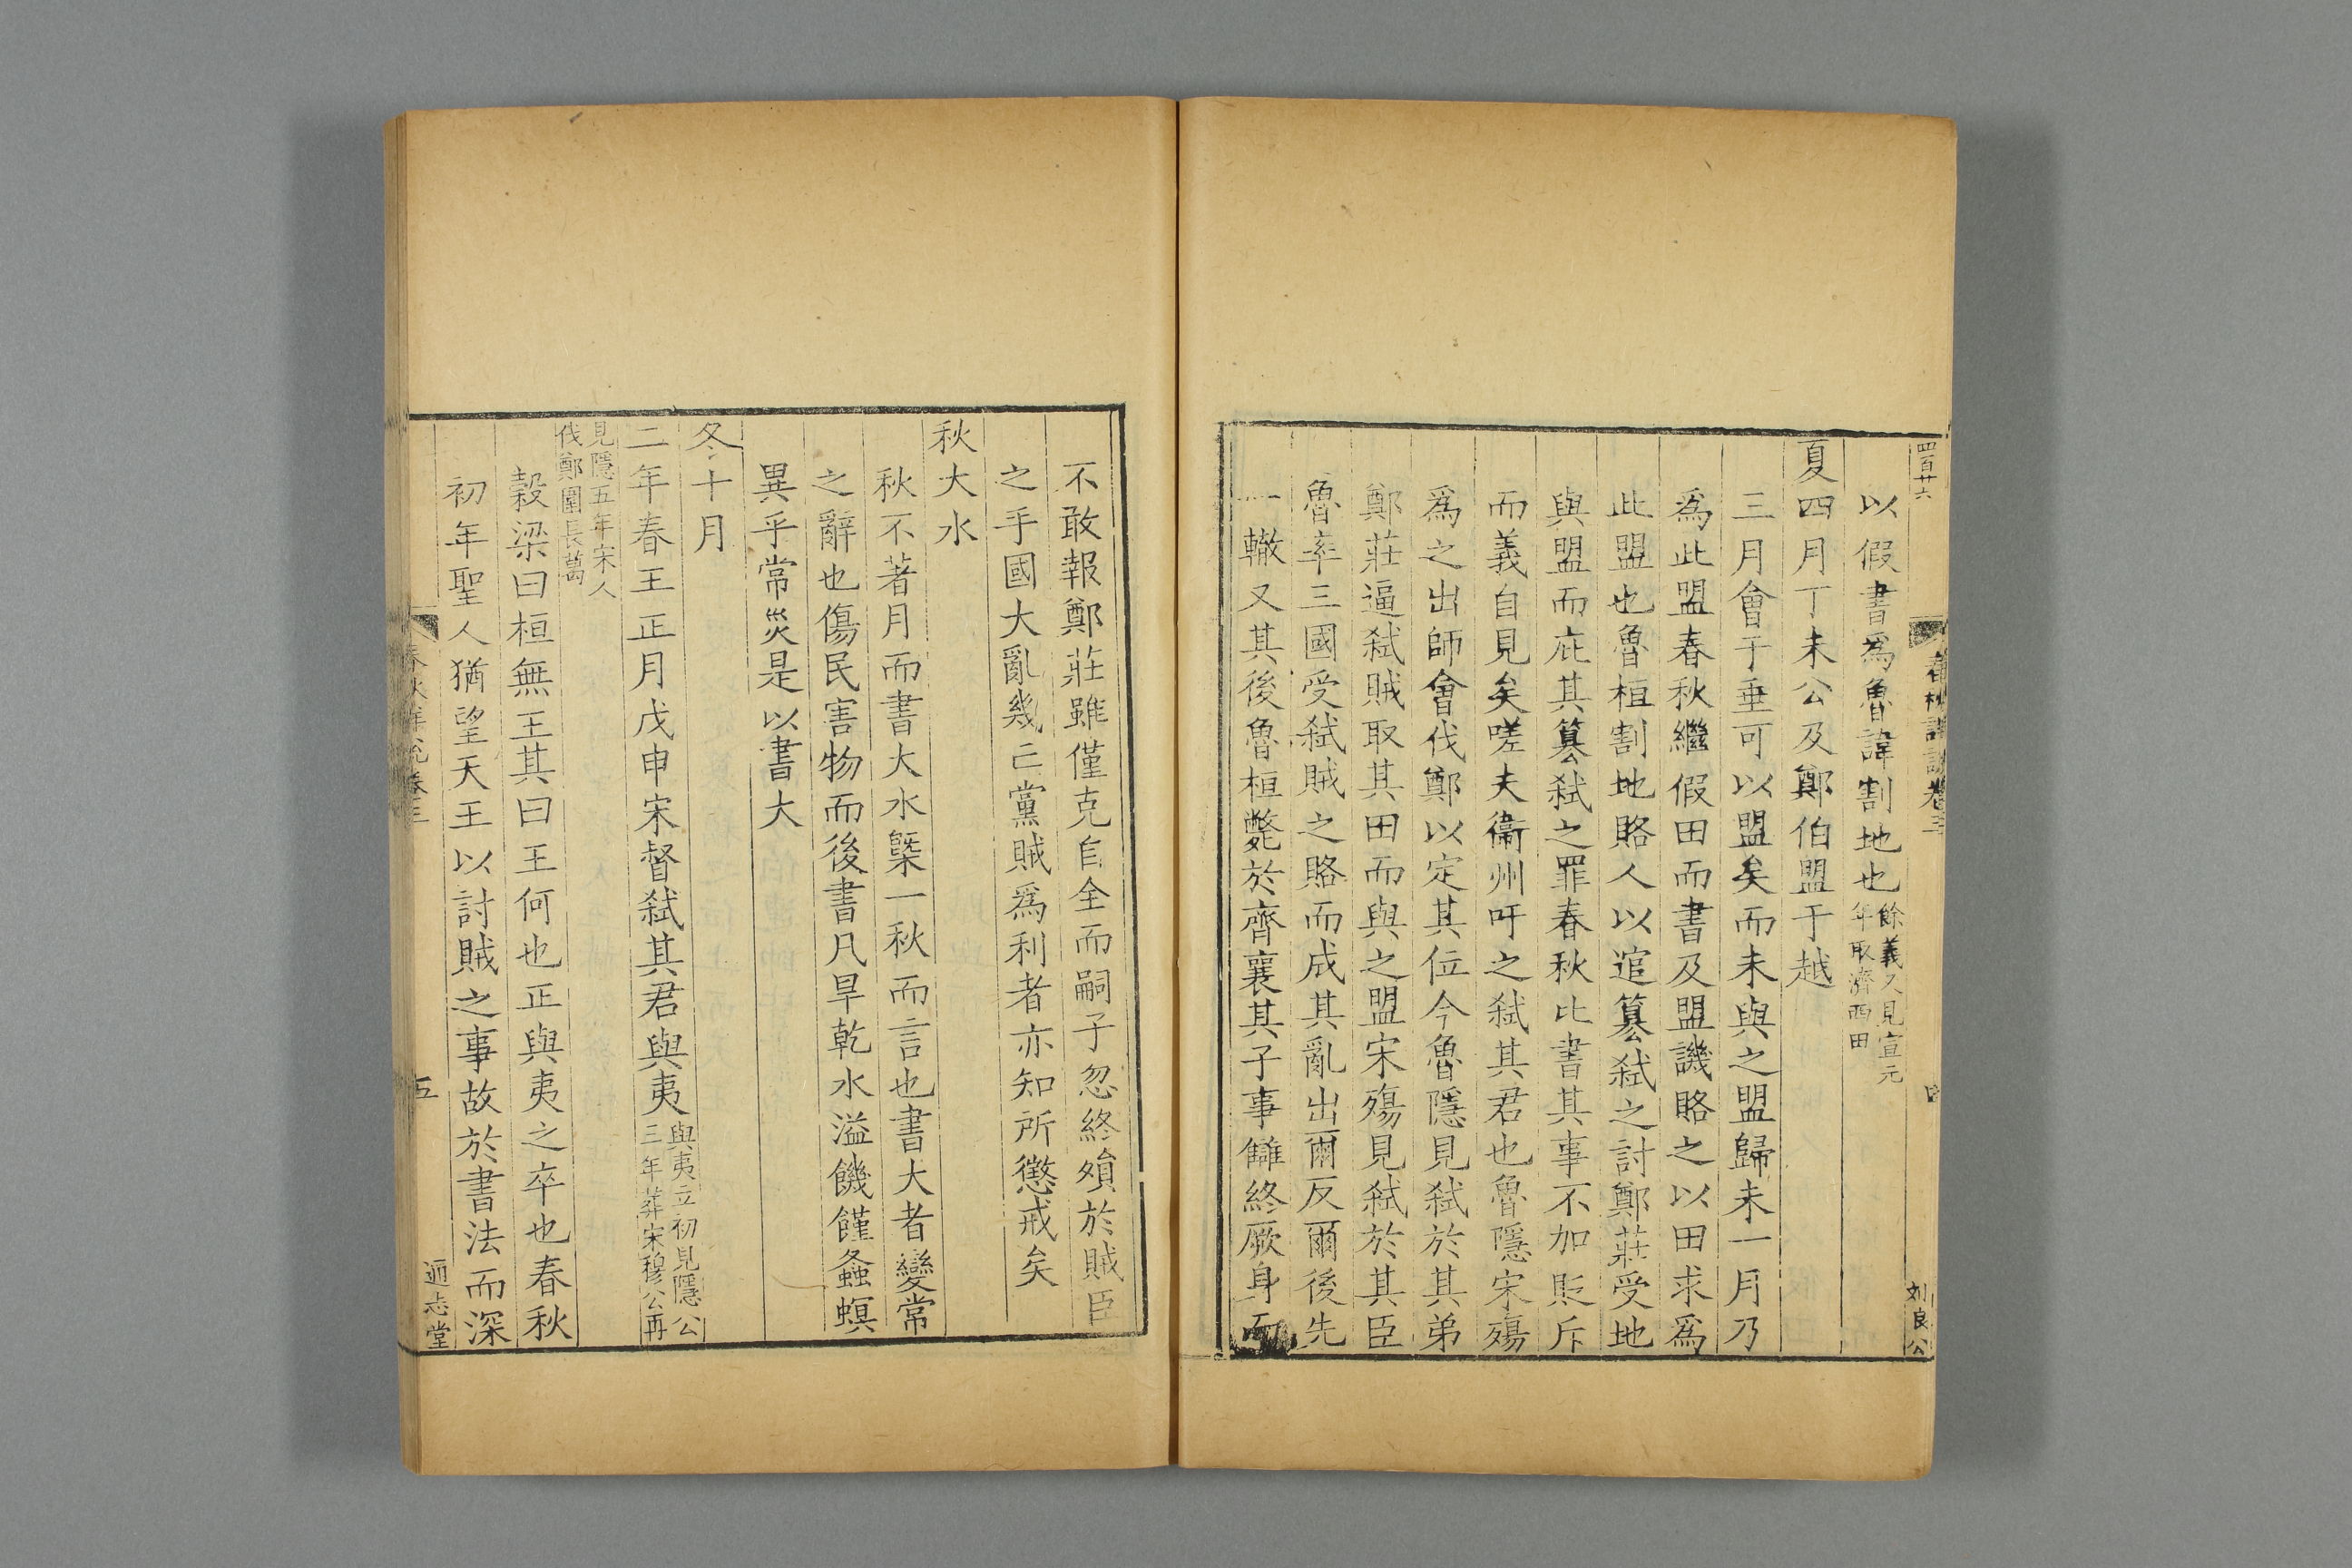 四百廿六
春秋詳說卷三
四
刘良公
以假書爲魯諱割地也餘義又見宣元
年取濟西田
夏四月丁未公及鄭伯盟于越
三月會于垂可以盟矣而未與之盟歸未一月乃
爲此盟春秋繼假田而書及盟譏賂之以田求爲
此盟也魯桓割地賂人以逭簒弑之討鄭莊受地
與盟而庇其簒弑之罪春秋比書其事不加貶斥
而義自見矣嗟夫衞州吁之弑其君也魯隱宋殤
爲之出師會伐鄭以定其位今魯隱見弑於其弟
鄭莊逼弑賊取其田而與之盟宋殤見弑於其臣
魯率三國受弑賊之賂而成其亂出爾反爾後先
一轍又其後魯桓斃於齊襄其子事讎終厥身而
不敢報鄭莊雖僅克自全而嗣子忽終殞於賊臣
之手國大亂幾亡黨賊爲利者亦知所懲戒矣
秋大水
秋不著月而書大水槩一秋而言也書大者變常
之辭也傷民害物而後書凡旱乾水溢饑饉螽螟
異乎常災是以書大
冬十月
二年春王正月戊申宋督弑其君與夷與夷立初見隱公
三年葬宋穆公再
見隱五年宋人
伐鄭圍長葛
穀梁曰桓無王其曰王何也正與夷之卒也春秋
初年聖人猶望天王以討賊之事故於書法而深
春秋詳說卷三
五
通志堂